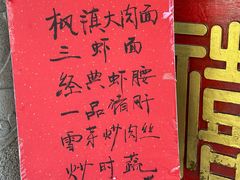 枫滇大肉面
三虾面
经典虾腰
一品猪肝
雪芽炒肉丝
炒时蔬